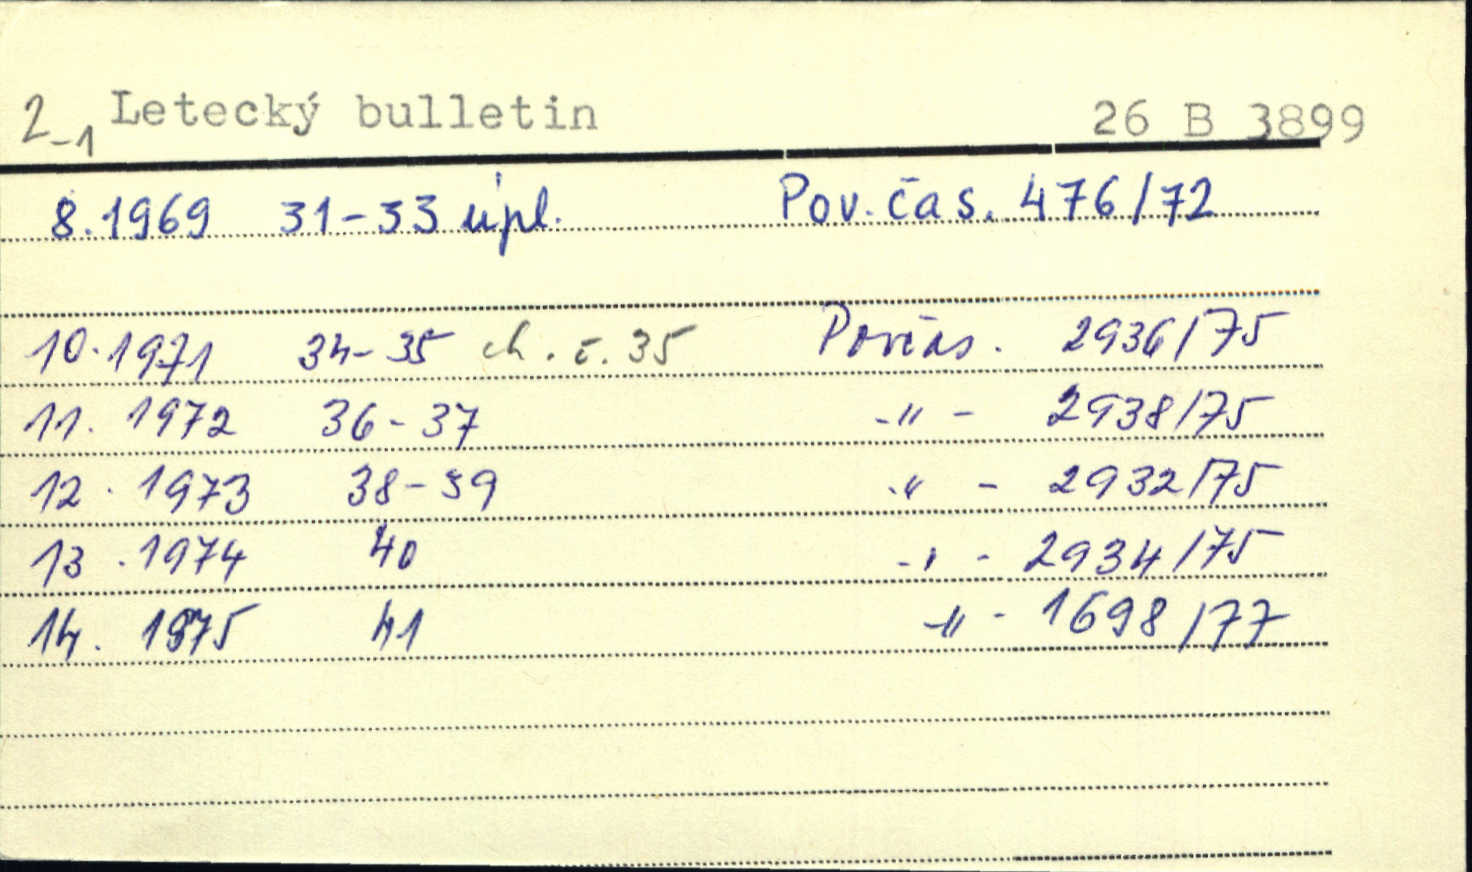 2-1 Letecký bulletin 26 B 3899
8.1969 31-33 úpl. Pov. čas. 476/72
10.1971 34-35 ch. č. 35 Povčas. 2936/75
11. 1972 36-37 -"- 2938/75
12. 1973 38-39 -"- 2932/75
13. 1974 40 -"- 2934/75
14. 1975 41 -"- 1698/77